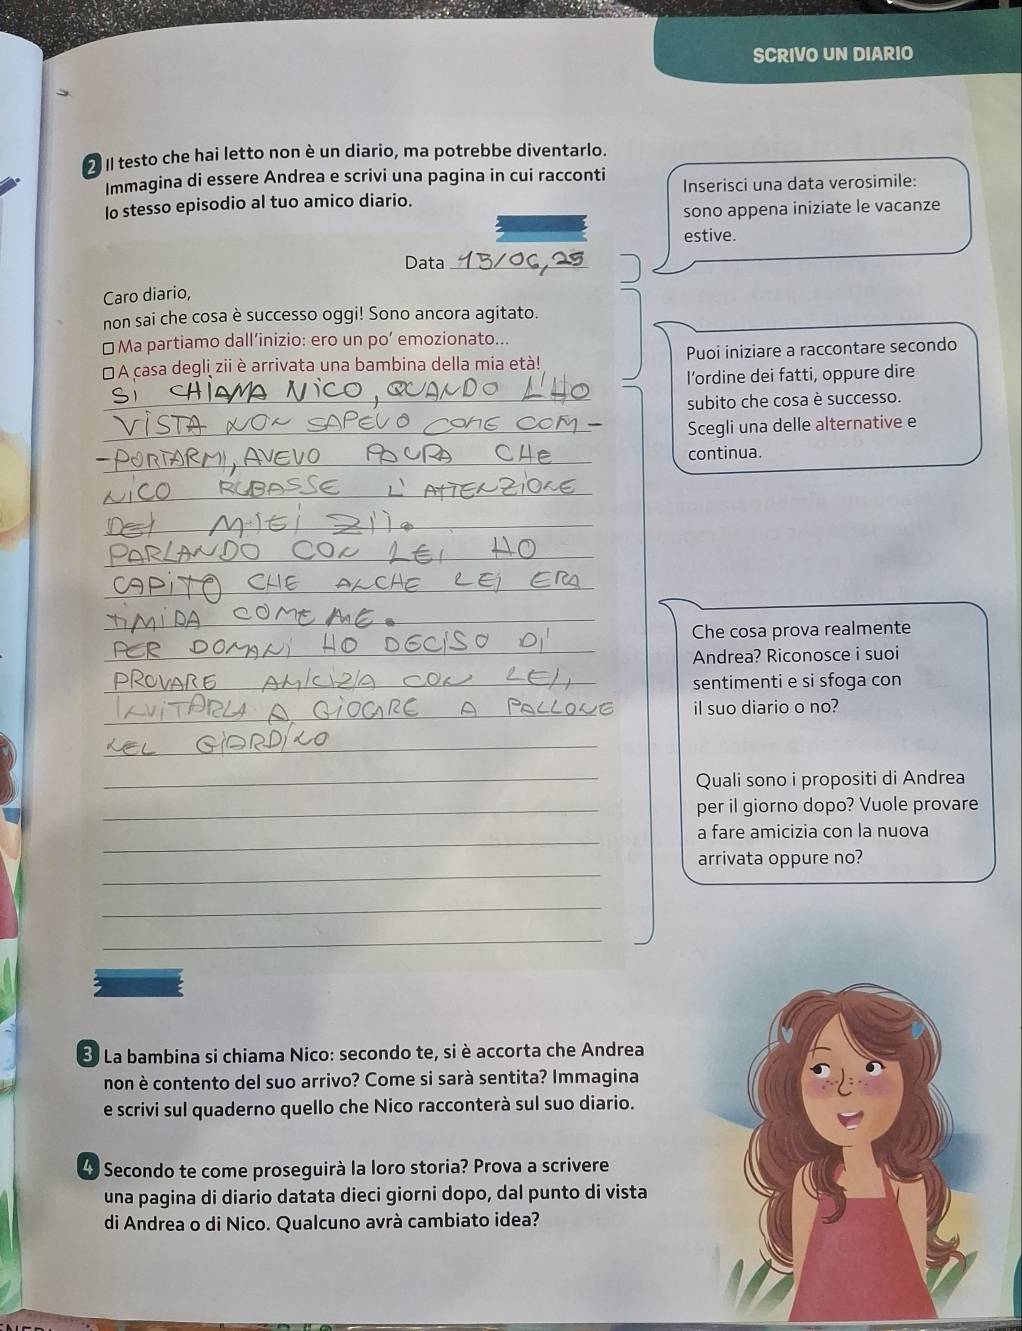 SCRIVO UN DIARIO
2 Il testo che hai letto non è un diario, ma potrebbe diventarlo.
Immagina di essere Andrea e scrivi una pagina in cui racconti
lo stesso episodio al tuo amico diario.
Inserisci una data verosimile:
sono appena iniziate le vacanze
estive.
Data 13/06,25
Caro diario,
non sai che cosa è successo oggi! Sono ancora agitato.
□ Ma partiamo dall'inizio: ero un po' emozionato...
□ A casa degli zii è arrivata una bambina della mia età!
SI CHIAMA NICO, QUANDO L'HO
VISTA NON SAPEVO COME COM-
-PORTARMI, AVEVO PAURA CHE
NICO RUBASSE L'ATTENZIONE
DEI MIEI ZII.
PARLANDO CON LEI HO
CAPITO CHE ANCHE LEI ERA
TIMIDA COME ME.
PER DOMANI HO DECISO DI
PROVARE AMICIZIA CON LEI,
INVITARLA A GIOCARE A PALLONE
NEL GIARDINO
Puoi iniziare a raccontare secondo
l'ordine dei fatti, oppure dire
subito che cosa è successo.
Scegli una delle alternative e
continua.
Che cosa prova realmente
Andrea? Riconosce i suoi
sentimenti e si sfoga con
il suo diario o no?
Quali sono i propositi di Andrea
per il giorno dopo? Vuole provare
a fare amicizia con la nuova
arrivata oppure no?
3 La bambina si chiama Nico: secondo te, si è accorta che Andrea
non è contento del suo arrivo? Come si sarà sentita? Immagina
e scrivi sul quaderno quello che Nico racconterà sul suo diario.
4 Secondo te come proseguirà la loro storia? Prova a scrivere
una pagina di diario datata dieci giorni dopo, dal punto di vista
di Andrea o di Nico. Qualcuno avrà cambiato idea?